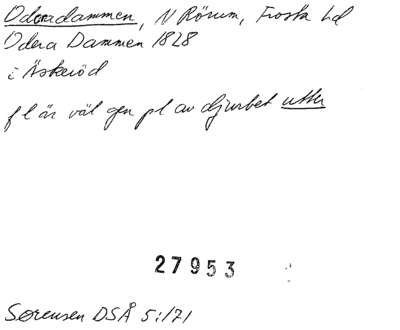 Odoradammen, N Rörum, Frosta hd
Odera Dammen 1828
i Äskeröd
f l är väl gen pl av djurbet utter
27953
Sørensen DSÅ 5:171